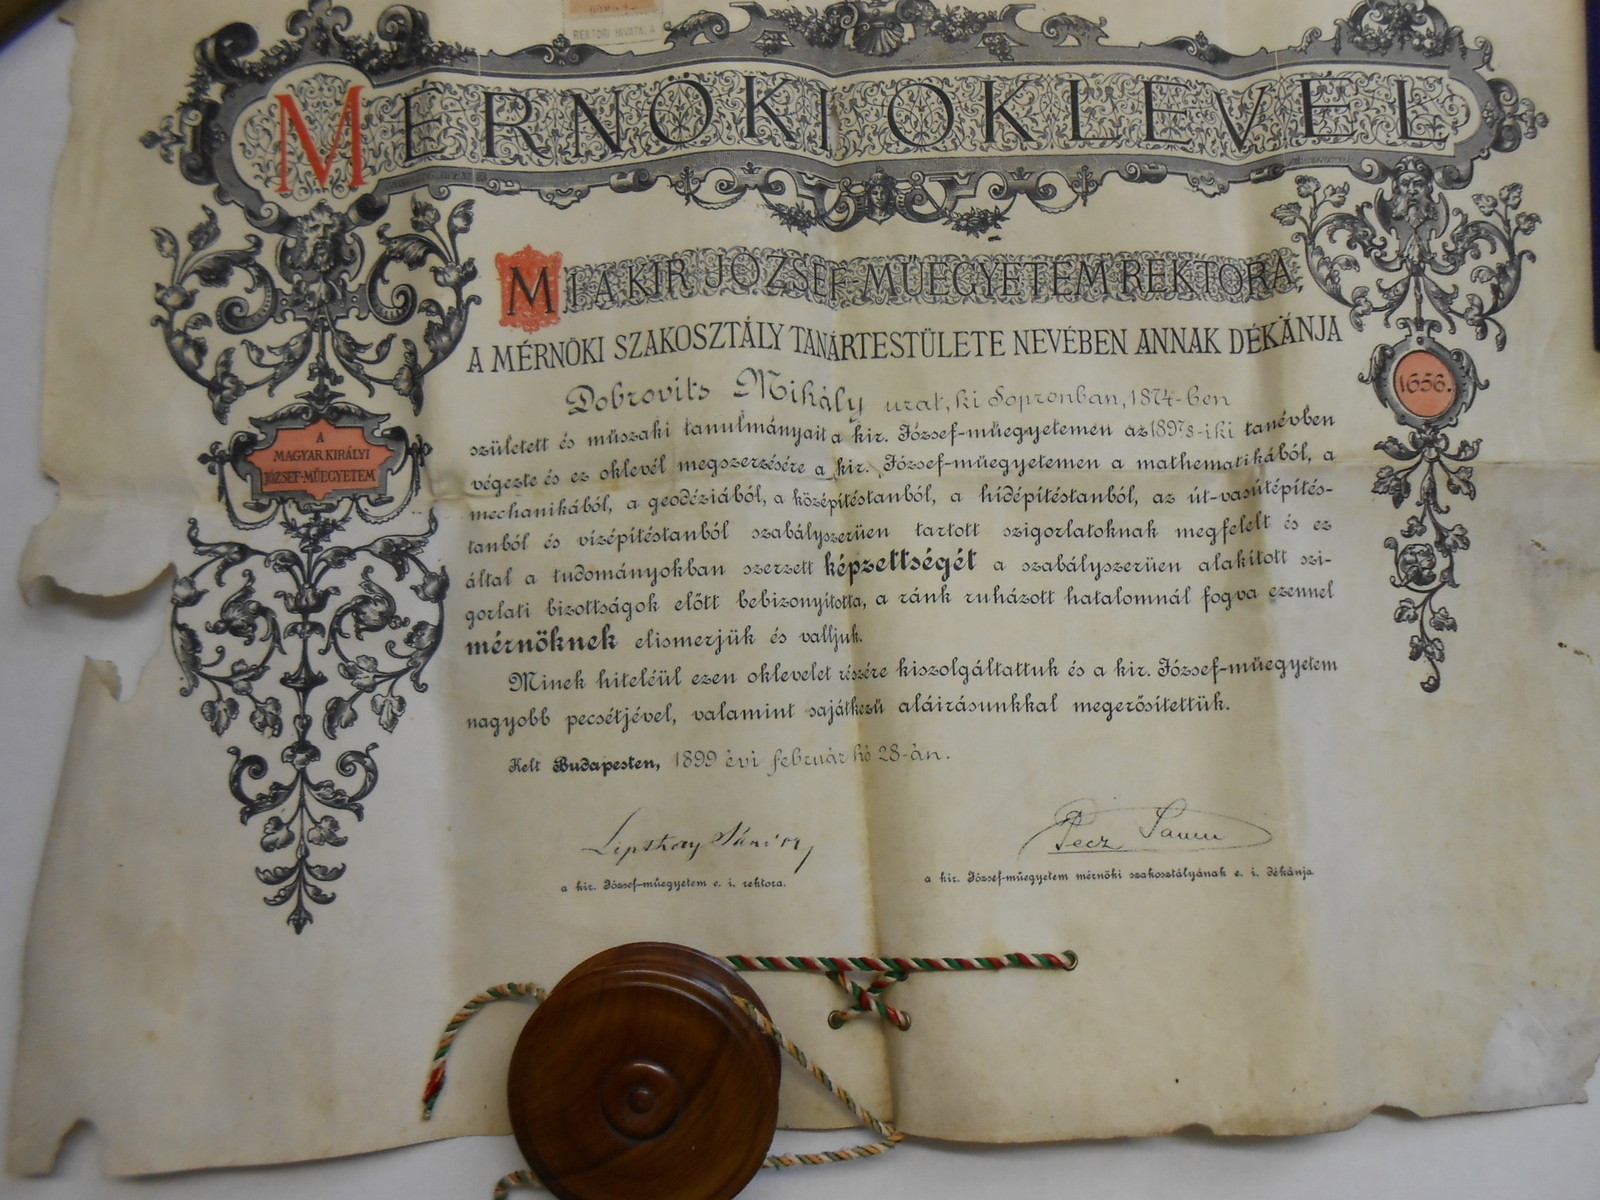 REKTORI HIVATALA
MÉRNÖKI OKLEVÉL
MI A KIR JÓZSEF-MŰEGYETEM REKTORA,
A MÉRNÖKI SZAKOSZTÁLY TANÁRTESTÜLETE NEVÉBEN ANNAK DÉKÁNJA
Dobrovits Mihály urat, ki Sopronban, 1874-ben
született és műszaki tanulmányait a kir. József-műegyetemen az 1897/8-iki tanévben
végezte és ez oklevél megszerzésére a kir. József-műegyetemen a mathematikából, a
mechanikából, a geodéziából, a középítéstanból, a hídépítéstanból, az út-vasútépítés-
tanból és vízépítéstanból szabályszerüen tartott szigorlatoknak megfelelt és ez
által a tudományokban szerzett képzettségét a szabályszerüen alakított szi-
gorlati bizottságok előtt bebizonyította, a ránk ruházott hatalomnál fogva ezennel
mérnöknek elismerjük és valljuk.
Minek hiteléül ezen oklevelet részére kiszolgáltattuk és a kir. József-műegyetem
nagyobb pecsétjével, valamint sajátkezű aláírásunkkal megerősítettük.
Kelt Budapesten, 1899 évi február hó 28-án.
Lipthay Sándor
a kir. József-műegyetem e. i. rektora.
Pecz Samu
a kir. József-műegyetem mérnöki szakosztályának e. i. dékánja.
A
MAGYAR KIRÁLYI
JÓZSEF-MŰEGYETEM
1656.